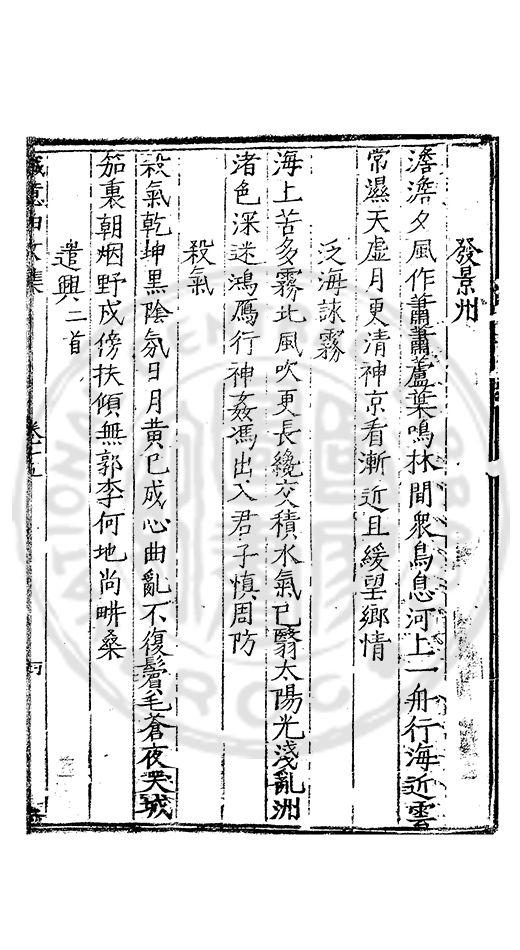 發景州
澹澹夕風作蕭蕭蘆葉鳴林間衆鳥息河上一舟行海近雲
常濕天虛月更清神京看漸近且緩望鄉情
泛海詠霧
海上苦多霧北風吹更長纔交積水氣已翳太陽光淺亂洲
渚色深迷鴻鴈行神姦馮出入君子慎周防
殺氣
殺氣乾坤黑陰氛日月黃已成心曲亂不復鬢毛蒼夜哭城
笳裏朝烟野戍傍扶傾無郭李何地尚畊桑
遣興二首